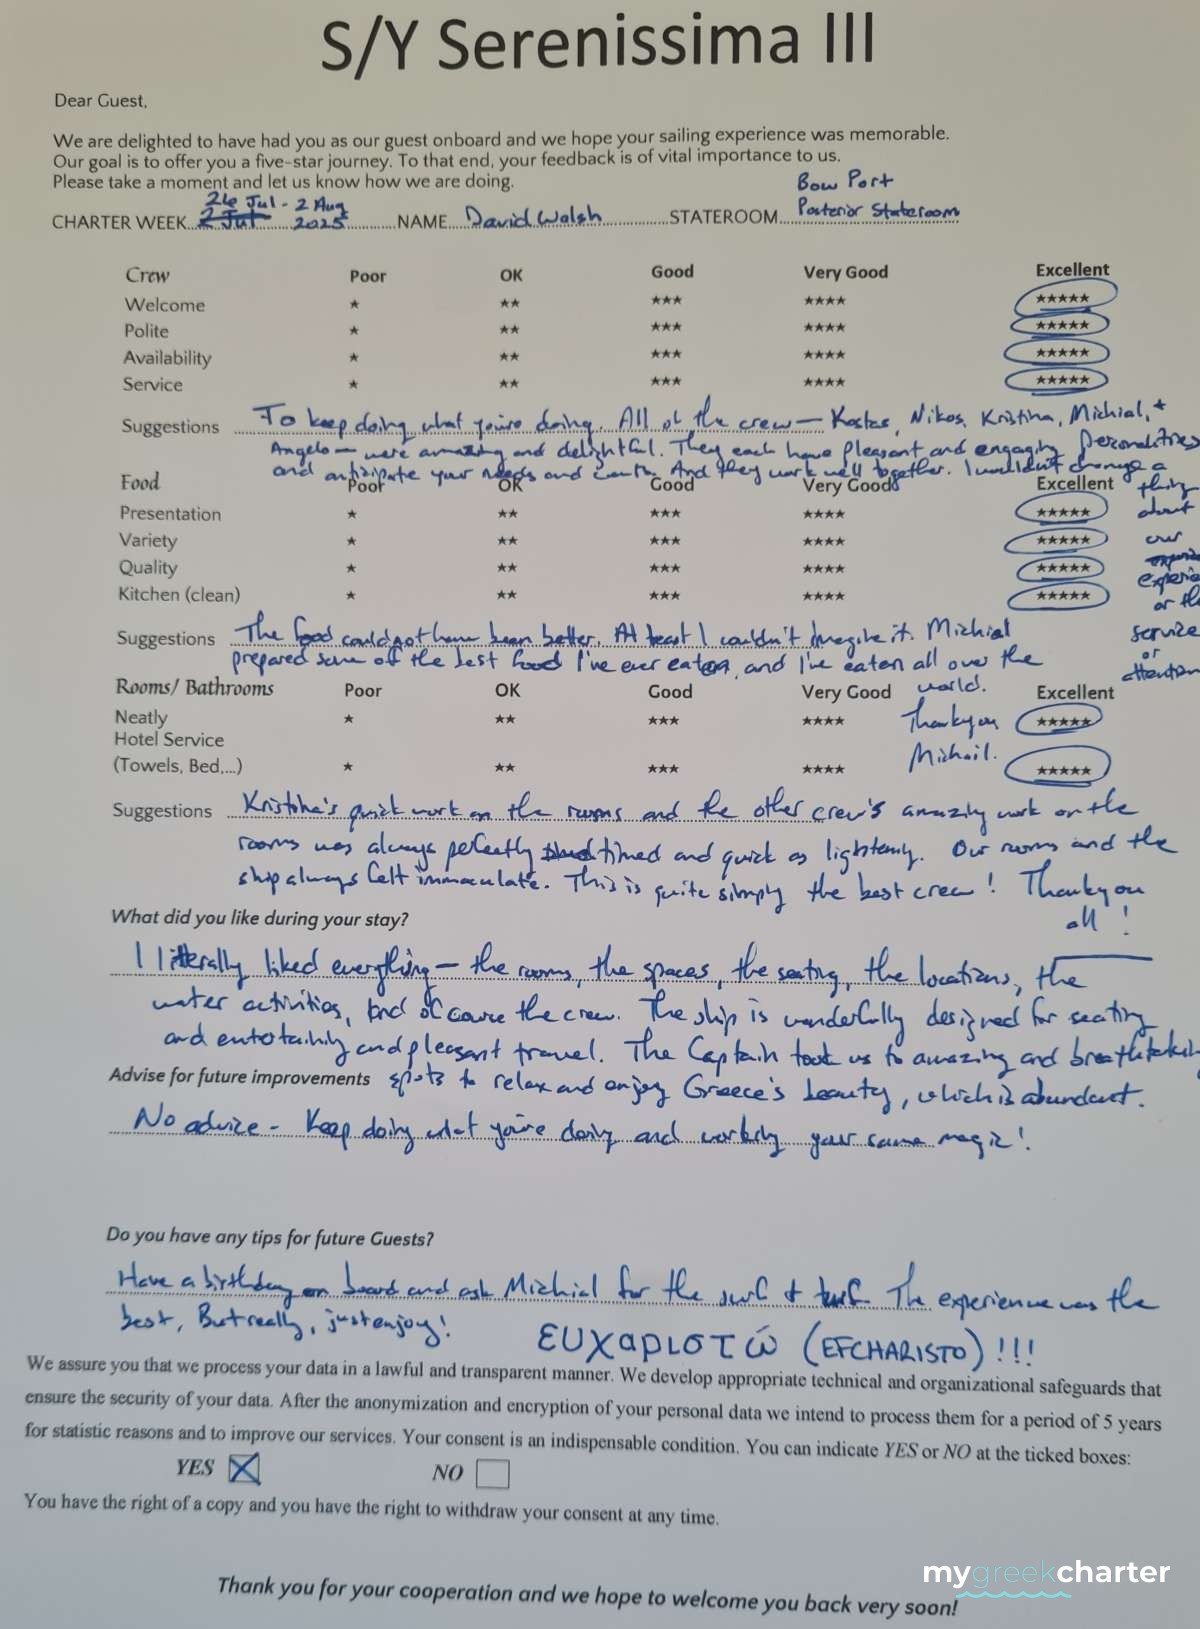 S/Y Serenissima III
Dear Guest,
We are delighted to have had you as our guest onboard and we hope your sailing experience was memorable.
Our goal is to offer you a five-star journey. To that end, your feedback is of vital importance to us.
Please take a moment and let us know how we are doing.
Bow Port
26 Jul - 2 Aug
CHARTER WEEK 2 Jul 2025 NAME David Walsh STATEROOM Posterior Stateroom
Crew Poor OK Good Very Good Excellent
Welcome ★ ★★ ★★★ ★★★★ ★★★★★
Polite ★ ★★ ★★★ ★★★★ ★★★★★
Availability ★ ★★ ★★★ ★★★★ ★★★★★
Service ★ ★★ ★★★ ★★★★ ★★★★★
Suggestions To keep doing what you're doing. All of the crew — Kostas, Nikos, Kristina, Michial, +
Angelo — were amazing and delightful. They each have pleasant and engaging personalities
and anticipate your needs and And they work well together. I wouldn't change a
thing
about
our
experie
or the
service
or
attention
Food Poor OK Good Very Good Excellent
Presentation ★ ★★ ★★★ ★★★★ ★★★★★
Variety ★ ★★ ★★★ ★★★★ ★★★★★
Quality ★ ★★ ★★★ ★★★★ ★★★★★
Kitchen (clean) ★ ★★ ★★★ ★★★★ ★★★★★
Suggestions The food could not have been better. At least I couldn't imagine it. Michial
prepared some of the best food I've ever eaten, and I've eaten all over the
world.
Thank you
Michail.
Rooms/ Bathrooms Poor OK Good Very Good Excellent
Neatly ★ ★★ ★★★ ★★★★ ★★★★★
Hotel Service
(Towels, Bed,...) ★ ★★ ★★★ ★★★★ ★★★★★
Suggestions Kristina's quick work on the rooms and the other crew's amazing work on the
rooms was always perfectly timed and quick as lightening. Our rooms and the
ship always felt immaculate. This is quite simply the best crew! Thank you
all!
What did you like during your stay?
I litterally liked everything — the rooms, the spaces, the seating, the locations, the
water activities, and of course the crew. The ship is wonderfully designed for seating
and entertaining and pleasant travel. The Captain took us to amazing and breathtaking
Advise for future improvements spots to relax and enjoy Greece's beauty, which is abundant.
No advice - Keep doing what you're doing and working your same magic!
Do you have any tips for future Guests?
Have a birthday on board and ask Michial for the surf & turf. The experience was the
best, But really, just enjoy!
ΕΥΧαριστώ (EFCHARISTO)!!!
We assure you that we process your data in a lawful and transparent manner. We develop appropriate technical and organizational safeguards that
ensure the security of your data. After the anonymization and encryption of your personal data we intend to process them for a period of 5 years
for statistic reasons and to improve our services. Your consent is an indispensable condition. You can indicate YES or NO at the ticked boxes:
YES ☒ NO ☐
You have the right of a copy and you have the right to withdraw your consent at any time.
mygreekcharter
Thank you for your cooperation and we hope to welcome you back very soon!